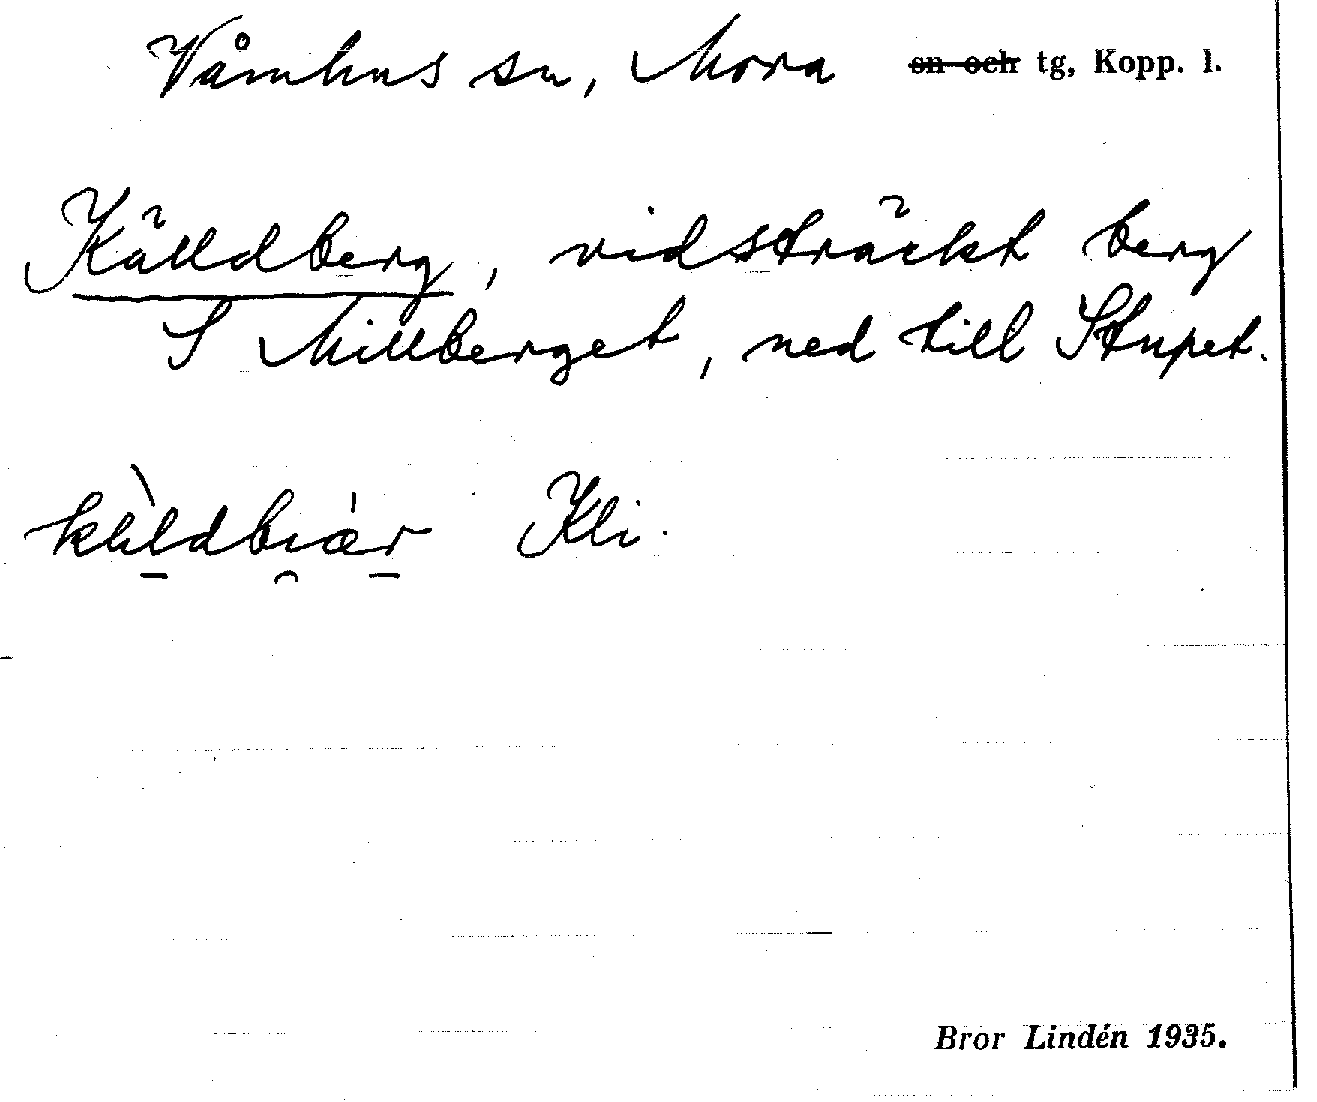 Våmhus sn, Mora sn och tg, Kopp. l.
Källdberg, vidsträckt berg
S Millberget, ned till Stupet.
Kli.
Bror Lindén 1935.